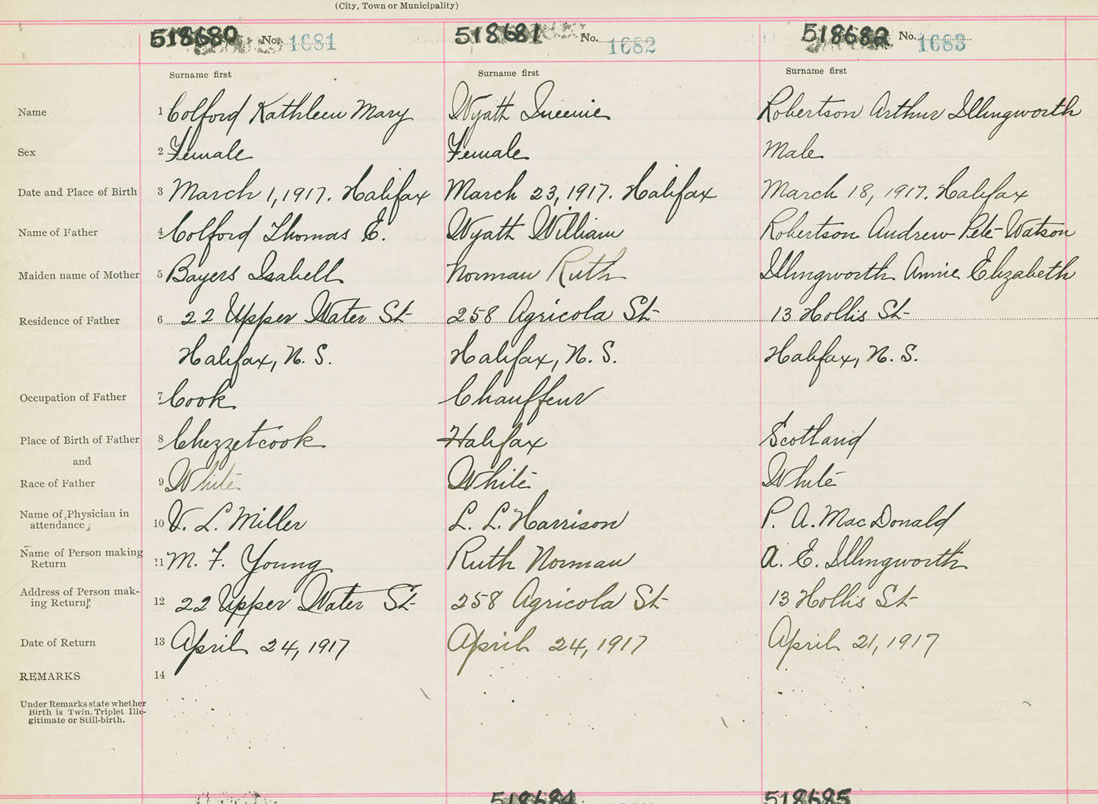 (City, Town or Municipality)
518680 No. 1681 518681 No. 1682 518682 No. 1683
Surname first Surname first Surname first
Name 1 Colford Kathleen Mary Wyatt Queenie Robertson Arthur Illingworth
Sex 2 Female Female Male
Date and Place of Birth 3 March 1, 1917. Halifax March 23, 1917. Halifax March 18, 1917. Halifax
Name of Father 4 Colford Thomas E. Wyatt William Robertson Andrew Watson
Maiden name of Mother 5 Bayers Isabell Norman Ruth Illingworth Annie Elizabeth
Residence of Father 6 22 Upper Water St 258 Agricola St 13 Hollis St
Halifax, N. S. Halifax, N. S. Halifax, N. S.
Occupation of Father 7 Cook Chauffeur
Place of Birth of Father 8 Chezzetcook Halifax Scotland
and
Race of Father 9 White White White
Name of Physician in
attendance 10 V. L. Miller L. L. Harrison P. A. MacDonald
Name of Person making
Return 11 M. F. Young Ruth Norman A. E. Illingworth
Address of Person mak-
ing Return 12 22 Upper Water St 258 Agricola St 13 Hollis St
Date of Return 13 April 24, 1917 April 24, 1917 April 21, 1917
REMARKS 14
Under Remarks state whether
Birth is Twin. Triplet Ille-
gitimate or Still-birth.
518684 518685